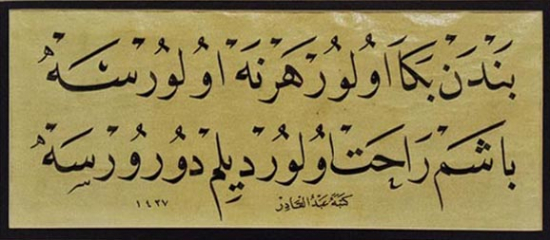 بَنْدَنْ بَكَا اُولُورْ هَرْ نَهْ اُولُورْسَهْ
باشَمْ رَاحَتْ اُولُورْ دِيلِمْ دُورُورْسَهْ
كتبه عبد القادر
١٤٢٧